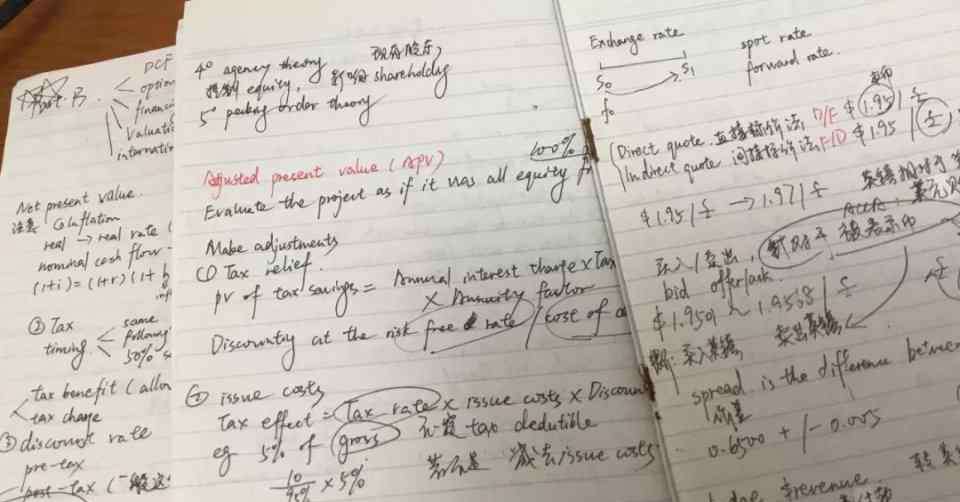 Part B.
DCF
option
financi
Valuati
internati
Net present value.
注意 ① Inflation
real → real rate (
nominal cash flow -
(1+i) = (1+r)(1+
② Tax
timing.
same
following
50%
tax benefit (allow
tax charge
③ discount rate
pre-tax
post-tax (
4° agency theory
现有股东,
控制 equity, shareholding
5° pecking order theory
Adjusted present value (APV)
100%
Evaluate the project as if it was all equity f
Make adjustments
① Tax relief.
PV of tax savings = Annual interest charge × Tax
× Annuity factor
Discounting at the risk free rate / cost of d
② issue costs
Tax effect = Tax rate × issue costs × Discount
eg 5% of gross 不定 tax dedutible
10/95% × 5% 若不是 减去 issue costs
Exchange rate
S0 S1
f0
spot rate
forward rate.
(Direct quote. 直接标价法 D/F $ 1.95 / £
Indirect quote 间接标价法 F/D $ 1.95 / £
$1.95/£ → 1.97/£ 英镑相对于
ACCA: 美元
买入/卖出, 针对于 被表示币
bid offer/ask.
$1.9501 ~ 1.9538 / £
买入英镑, 卖出英镑
spread is the difference between
0.6500 + / - 0.005
revenue.